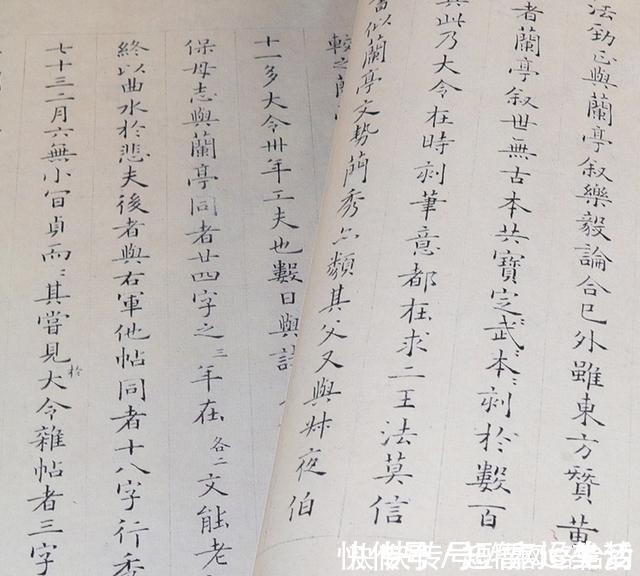 法勁正與蘭亭叙樂毅論合已外雖東方贊黃
者蘭亭叙世無古本共寶定武〻本〻刻於數百
此乃大令在時刻筆意都在求二王法莫信
似蘭亭文勢簡秀亦類其父又與叔夜伯
較之蘭
十一多大令卅年工夫也數日與諸
保母志與蘭亭同者廿四字之三年在各二文能老
終以曲水於悲夫後者與右軍他帖同者十八字行秀
七十三二月六無小官貞而〻其嘗見於大令雜帖者三字